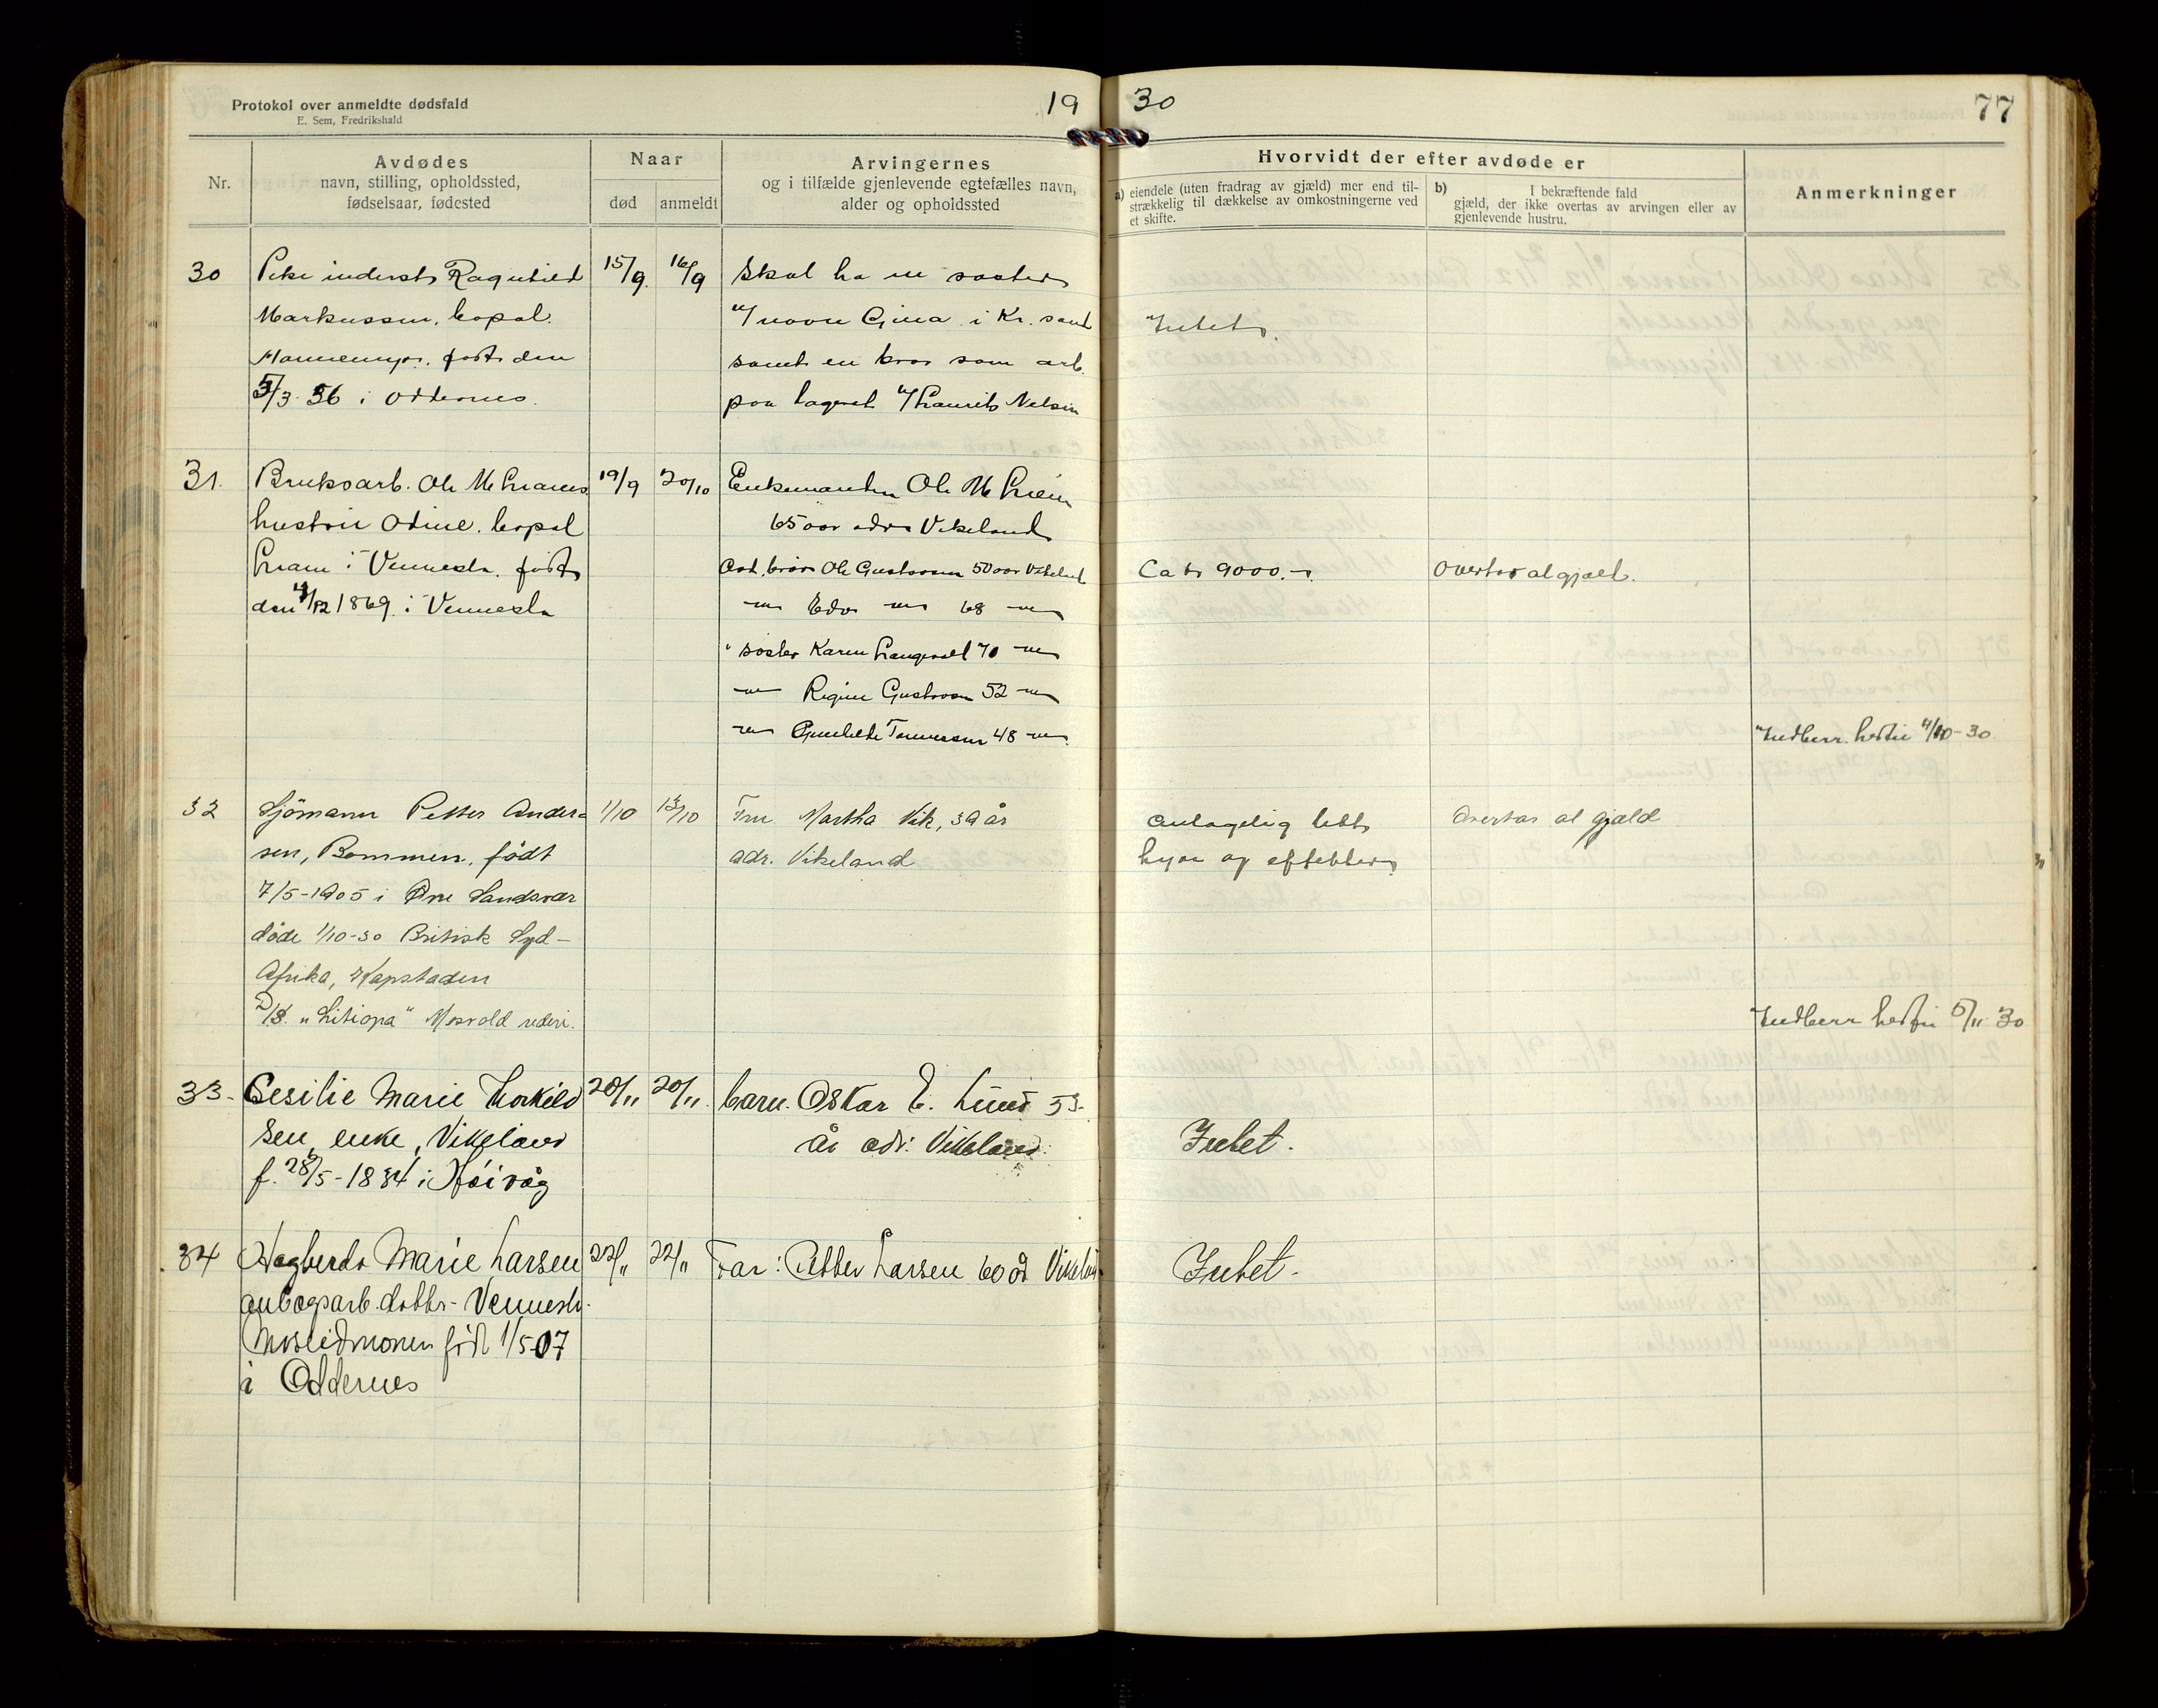 Protokol over anmeldte dødsfald
E. Sem, Fredrikshald
19 30
77
Nr.
Avdødes
navn, stilling, opholdssted,
fødselsaar, fødested
Naar
død
anmeldt
Arvingernes
og i tilfælde gjenlevende egtefælles navn,
alder og opholdssted
Hvorvidt der efter avdøde er
a) eiendele (uten fradrag av gjæld) mer end til-
strækkelig til dækkelse av omkostningerne ved
et skifte.
b) I bekræftende fald
gjæld, der ikke overtas av arvingen eller av
gjenlevende hustru.
Anmerkninger
30
Pike inderst Ragnhild
Markussen, bopal.
født den
5/3 56 i Oddernes.
15/9.
16/9
Skal ha en søster
v/ navn Gina i Kr. sand
samt en bror som arb.
paa lageret v/ Laurits Nelsen
Intet
31.
Bruksarb. Ole M
hustru Odine. bopal
i Vennesla. født
den /12 1869 i Vennesla
19/9
20/10
Enkemanden Ole M
65 aar adr. Vikeland
Avd. bror Ole Gustavsen 50 aar Vikeland
-"- Edv. -"- 68 -"-
" søster Karen Langevoll 70 -"-
-"- Regine Gustavsen 52 -"-
-"- Gunhilde Tønnessen 48 -"-
Ca kr 9000.-
Overtar al gjæld.
Indberr. hertil 4/10-30
32
Sjömann Petter Ander-
sen, Bommen, födt
7/5-1905 i Øvre Sandsvær
döde 1/10-30 Britisk Syd-
Afrika, Kapstaden
D/S. "Litiopa" Mosvold rederi.
1/10
13/10
Fru Martha Vik, 39 år
adr. Vikeland
Antagelig litt
hyre og effekter
Overtar al gjæld
Indberr 5/11 30
33-
Cesilie Marie Torkild
sen, enke, Vikeland
f. 28/5-1834 i Höivåg
20/11
20/11.
barn. Oskar E. Lund 53-
år adr: Vikeland
Intet.
34
Dagberta Marie Larsen
anlægsarb. datter- Vennesla-
Moseidmonen födt 1/5-07
i Oddernes
22/11
22/11
Far: Petter Larsen 60 år Vikeland
Intet.